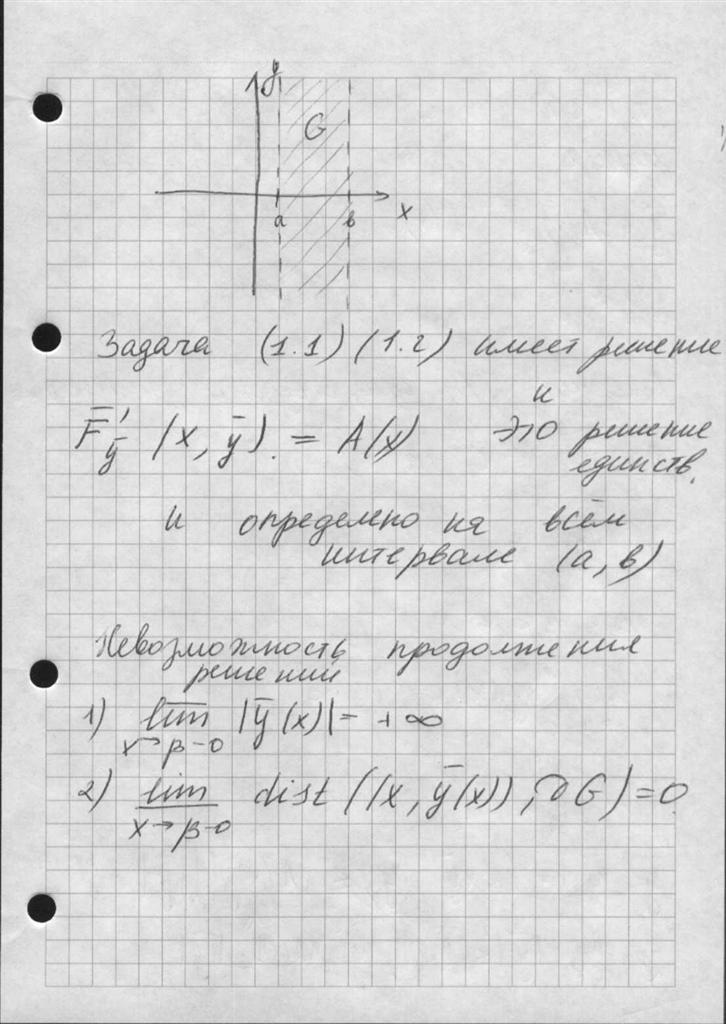 y
G
a b x
Задача (1.1) (1.2) имеет решение
и
F̄'ȳ (x, ȳ) = A(x) это решение
единств.
и определено на всём
интервале (a, b)
Невозможность продолжения
решений
1) lim̅ |ȳ(x)| = +∞
x→β-0
2) lim̲ dist ((x, ȳ(x)), ∂G) = 0
x→β-0